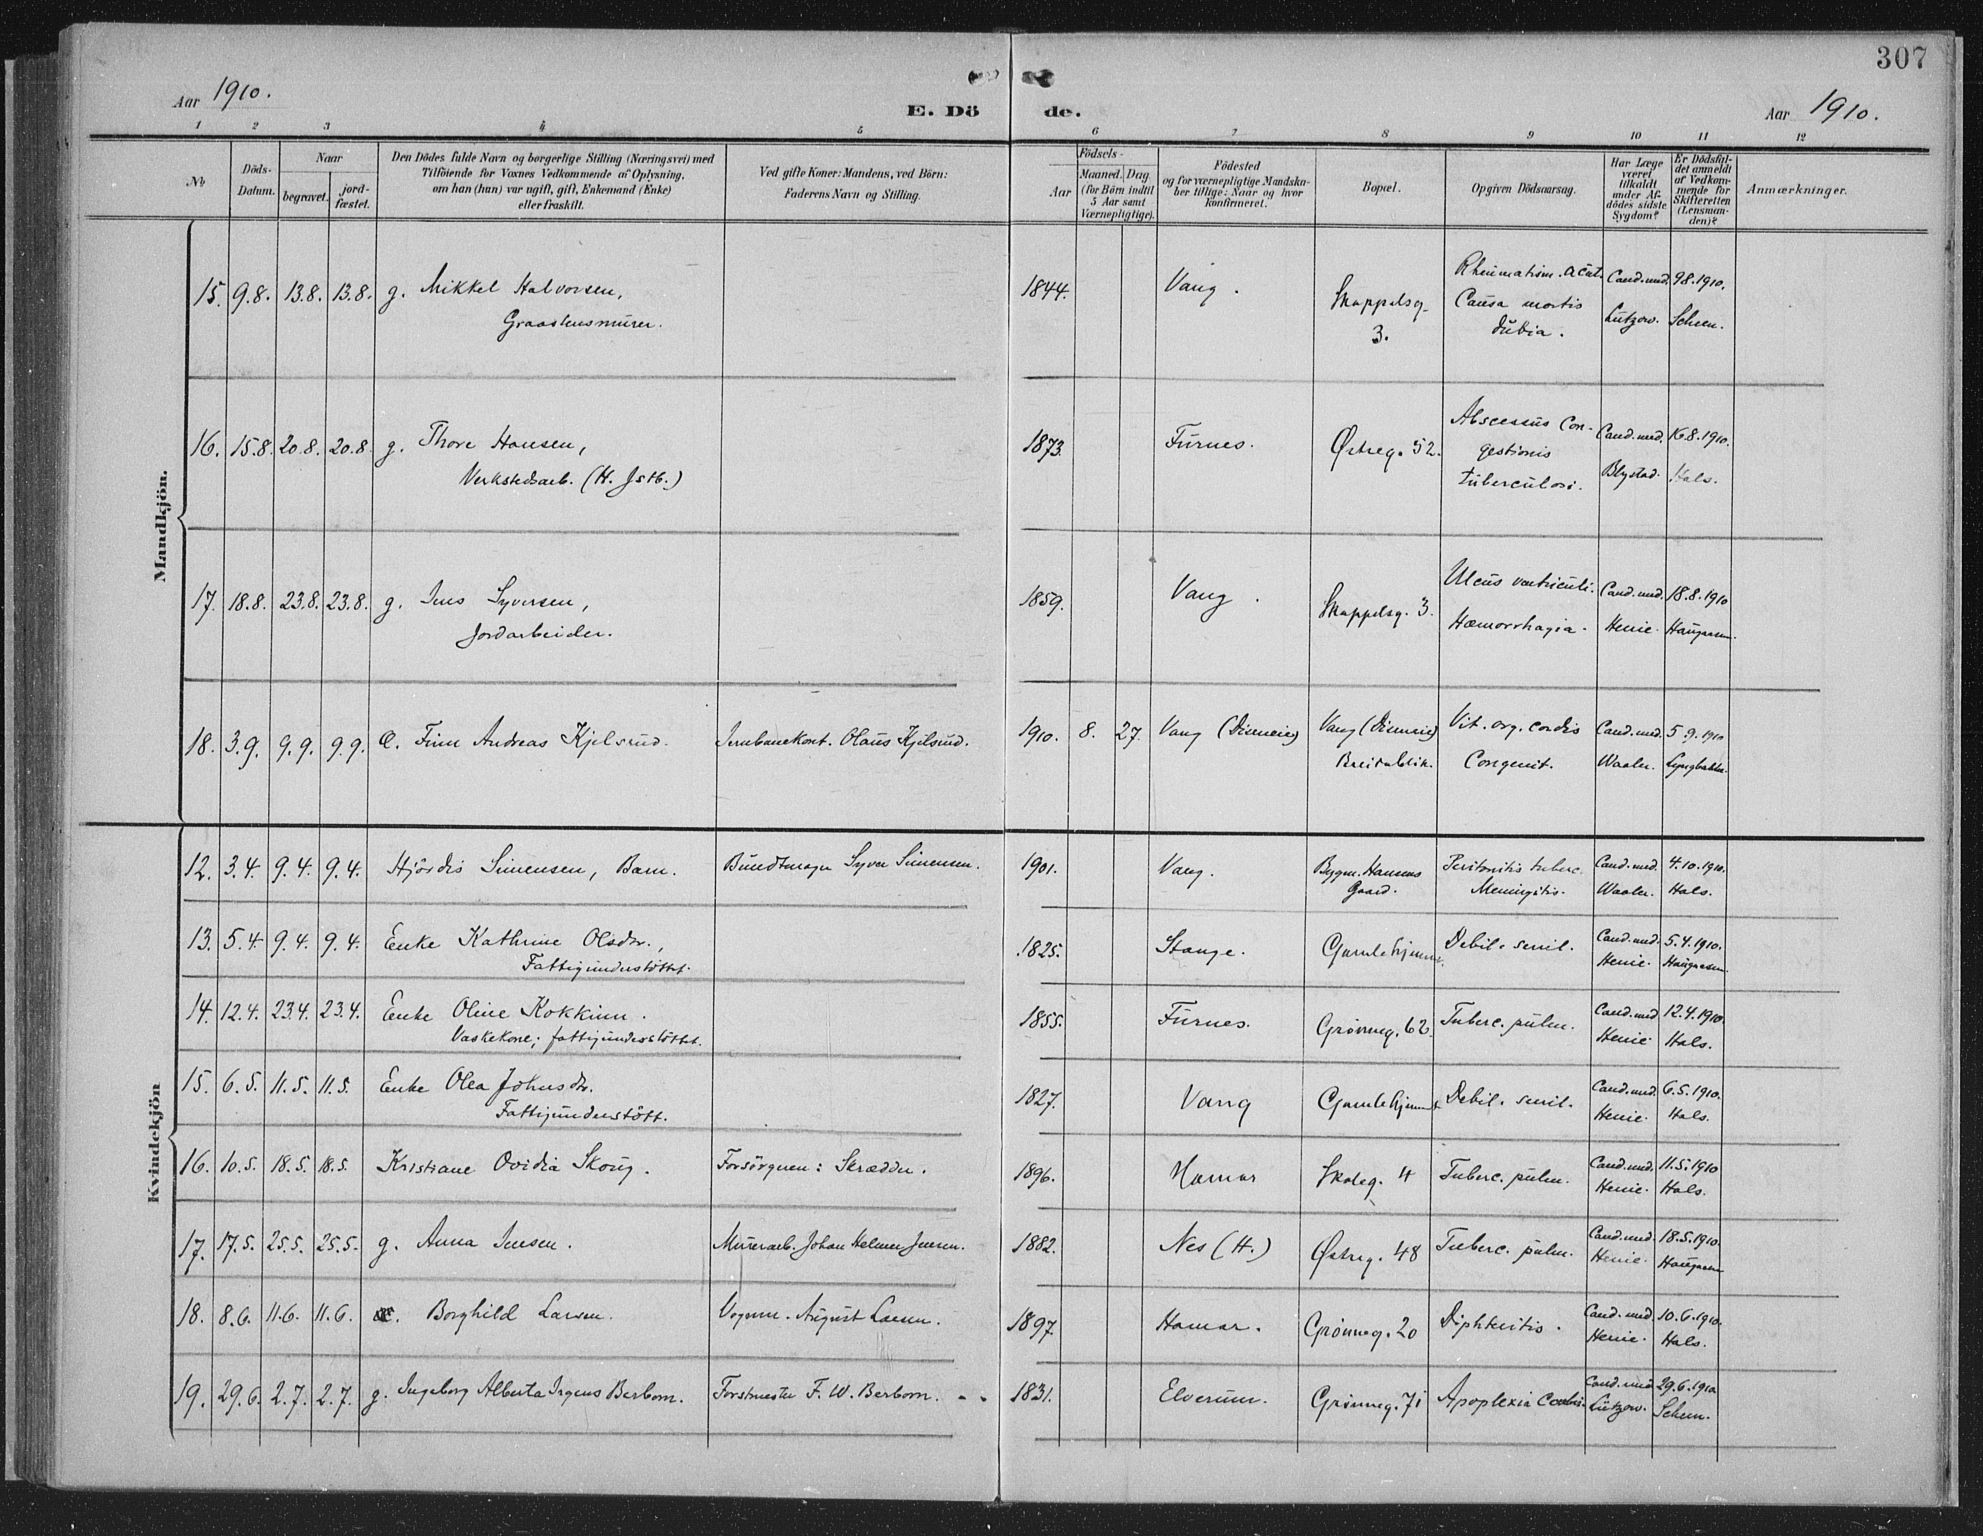 307
Aar 1910.
E. Döde.
Aar 1910.
1 2 3 4 5 6 7 8 9 10 11 12
No
Döds-Datum.
Naar
begravet.
jord-fæstet.
Den Dödes fulde Navn og borgerlige Stilling (Næringsvei) med
Tilföiende for Voxnes Vedkommende af Oplysning,
om han (hun) var ugift, gift, Enkemand (Enke)
eller fraskilt.
Ved gifte Koner: Mandens, ved Börn:
Faderens Navn og Stilling.
Födsels-
Aar
Maaned. Dag
(for Börn indtil
5 Aar samt
Værnepligtige).
Födested
og for værnepligtige Mandska-
ber tillige: Naar og hvor
konfirmeret.
Bopæl.
Opgiven Dödsaarsag.
Har Læge
været
tilkaldt
under Af-
dödes sidste
Sygdom?
Er Dödsfal-
det anmeldt
af Vedkom-
mende for
Skifteretten
(Lensman-
den)?
Anmærkninger.
Mandkjön.
15. 9.8. 13.8. 13.8. g. Mikkel Halvorsen, 1844. Vang. Skappelsg. Rheumatism. acut. Cand. med. 9.8.1910.
Graastensmurer. 3. Causa mortis Lützow. Scheen.
dubia.
16. 15.8. 20.8. 20.8. g. Thore Hansen, 1873. Furnes. Østreg. 52. Abscessus con- Cand. med. 16.8.1910.
Verkstedsarb. (H. Jstb.) gestionis Blystad. Hals.
tuberculosi.
17. 18.8. 23.8. 23.8. g. Jens Syversen, 1859. Vang. Skappelsg. 3. Ulcus ventriculi. Cand. med. 18.8.1910
Jordarbeider. Hæmorrhagia. Henie.
18. 3.9. 9.9. 9.9. Finn Andreas Kjelsrud. Jernbanekont. Olaus Kjelsrud. 1910. 8. 27. Vang (Diseneie) Vang (Diseneie) Vit. org. cordis Cand. med. 5.9.1910
Congenit. Waaler.
Kvindekjön
12. 3.4. 9.4. 9.4. Hjördis Simensen, Barn. Bundtmager Syver Simensen. 1901. Vang. Bygm. Hansens Peritonitis tuberc. Cand. med. 4.10.1910.
Gaard. Meningitis. Waaler. Hals.
13. 5.4. 9.4. 9.4. Enke Kathrine Olsdtr., 1825. Stange. Gamlehjemmet. Debil. senil. Cand. med. 5.4.1910.
Fattigunderstöttet. Henie.
14. 12.4. 23.4. 23.4. Enke Oline Kokkinn. 1855. Furnes. Grønneg. 62. Tuberc. pulm. Cand. med. 12.4.1910.
Vaskekone; fattigunderstöttet. Henie. Hals.
15. 6.5. 11.5. 11.5. Enke Olea Johnsdtr. 1827. Vang Gamlehjemmet Debil. senil. Cand. med. 6.5.1910.
Fattigunderstött. Henie. Hals.
16. 10.5. 18.5. 18.5. Kristiane Ovidia Skoug. Forsörgeren: Skrædder. 1896. Hamar Skoleg. 4 Tuberc. pulm. Cand. med. 11.5.1910
Henie. Hals.
17. 17.5. 25.5. 25.5. g. Anna Jensen. Murerarb. Johan Helmer Jensen. 1882. Nes (H.) Østreg. 48 Tuberc. pulm. Cand. med. 18.5.1910.
Henie.
18. 8.6. 11.6. 11.6. Borghild Larsen. Vognm. August Larsen. 1897. Hamar. Grønneg. 20 Diphteritis. Cand. med. 10.6.1910.
Henie. Hals.
19. 29.6. 2.7. 2.7. g. Ingeborg Alberta Irgens Berbom. Forstmester F. W. Berbom. 1831. Elverum. Grønneg. 71 Apoplexia Cand. med. 29.6.1910.
Lützow. Scheen.